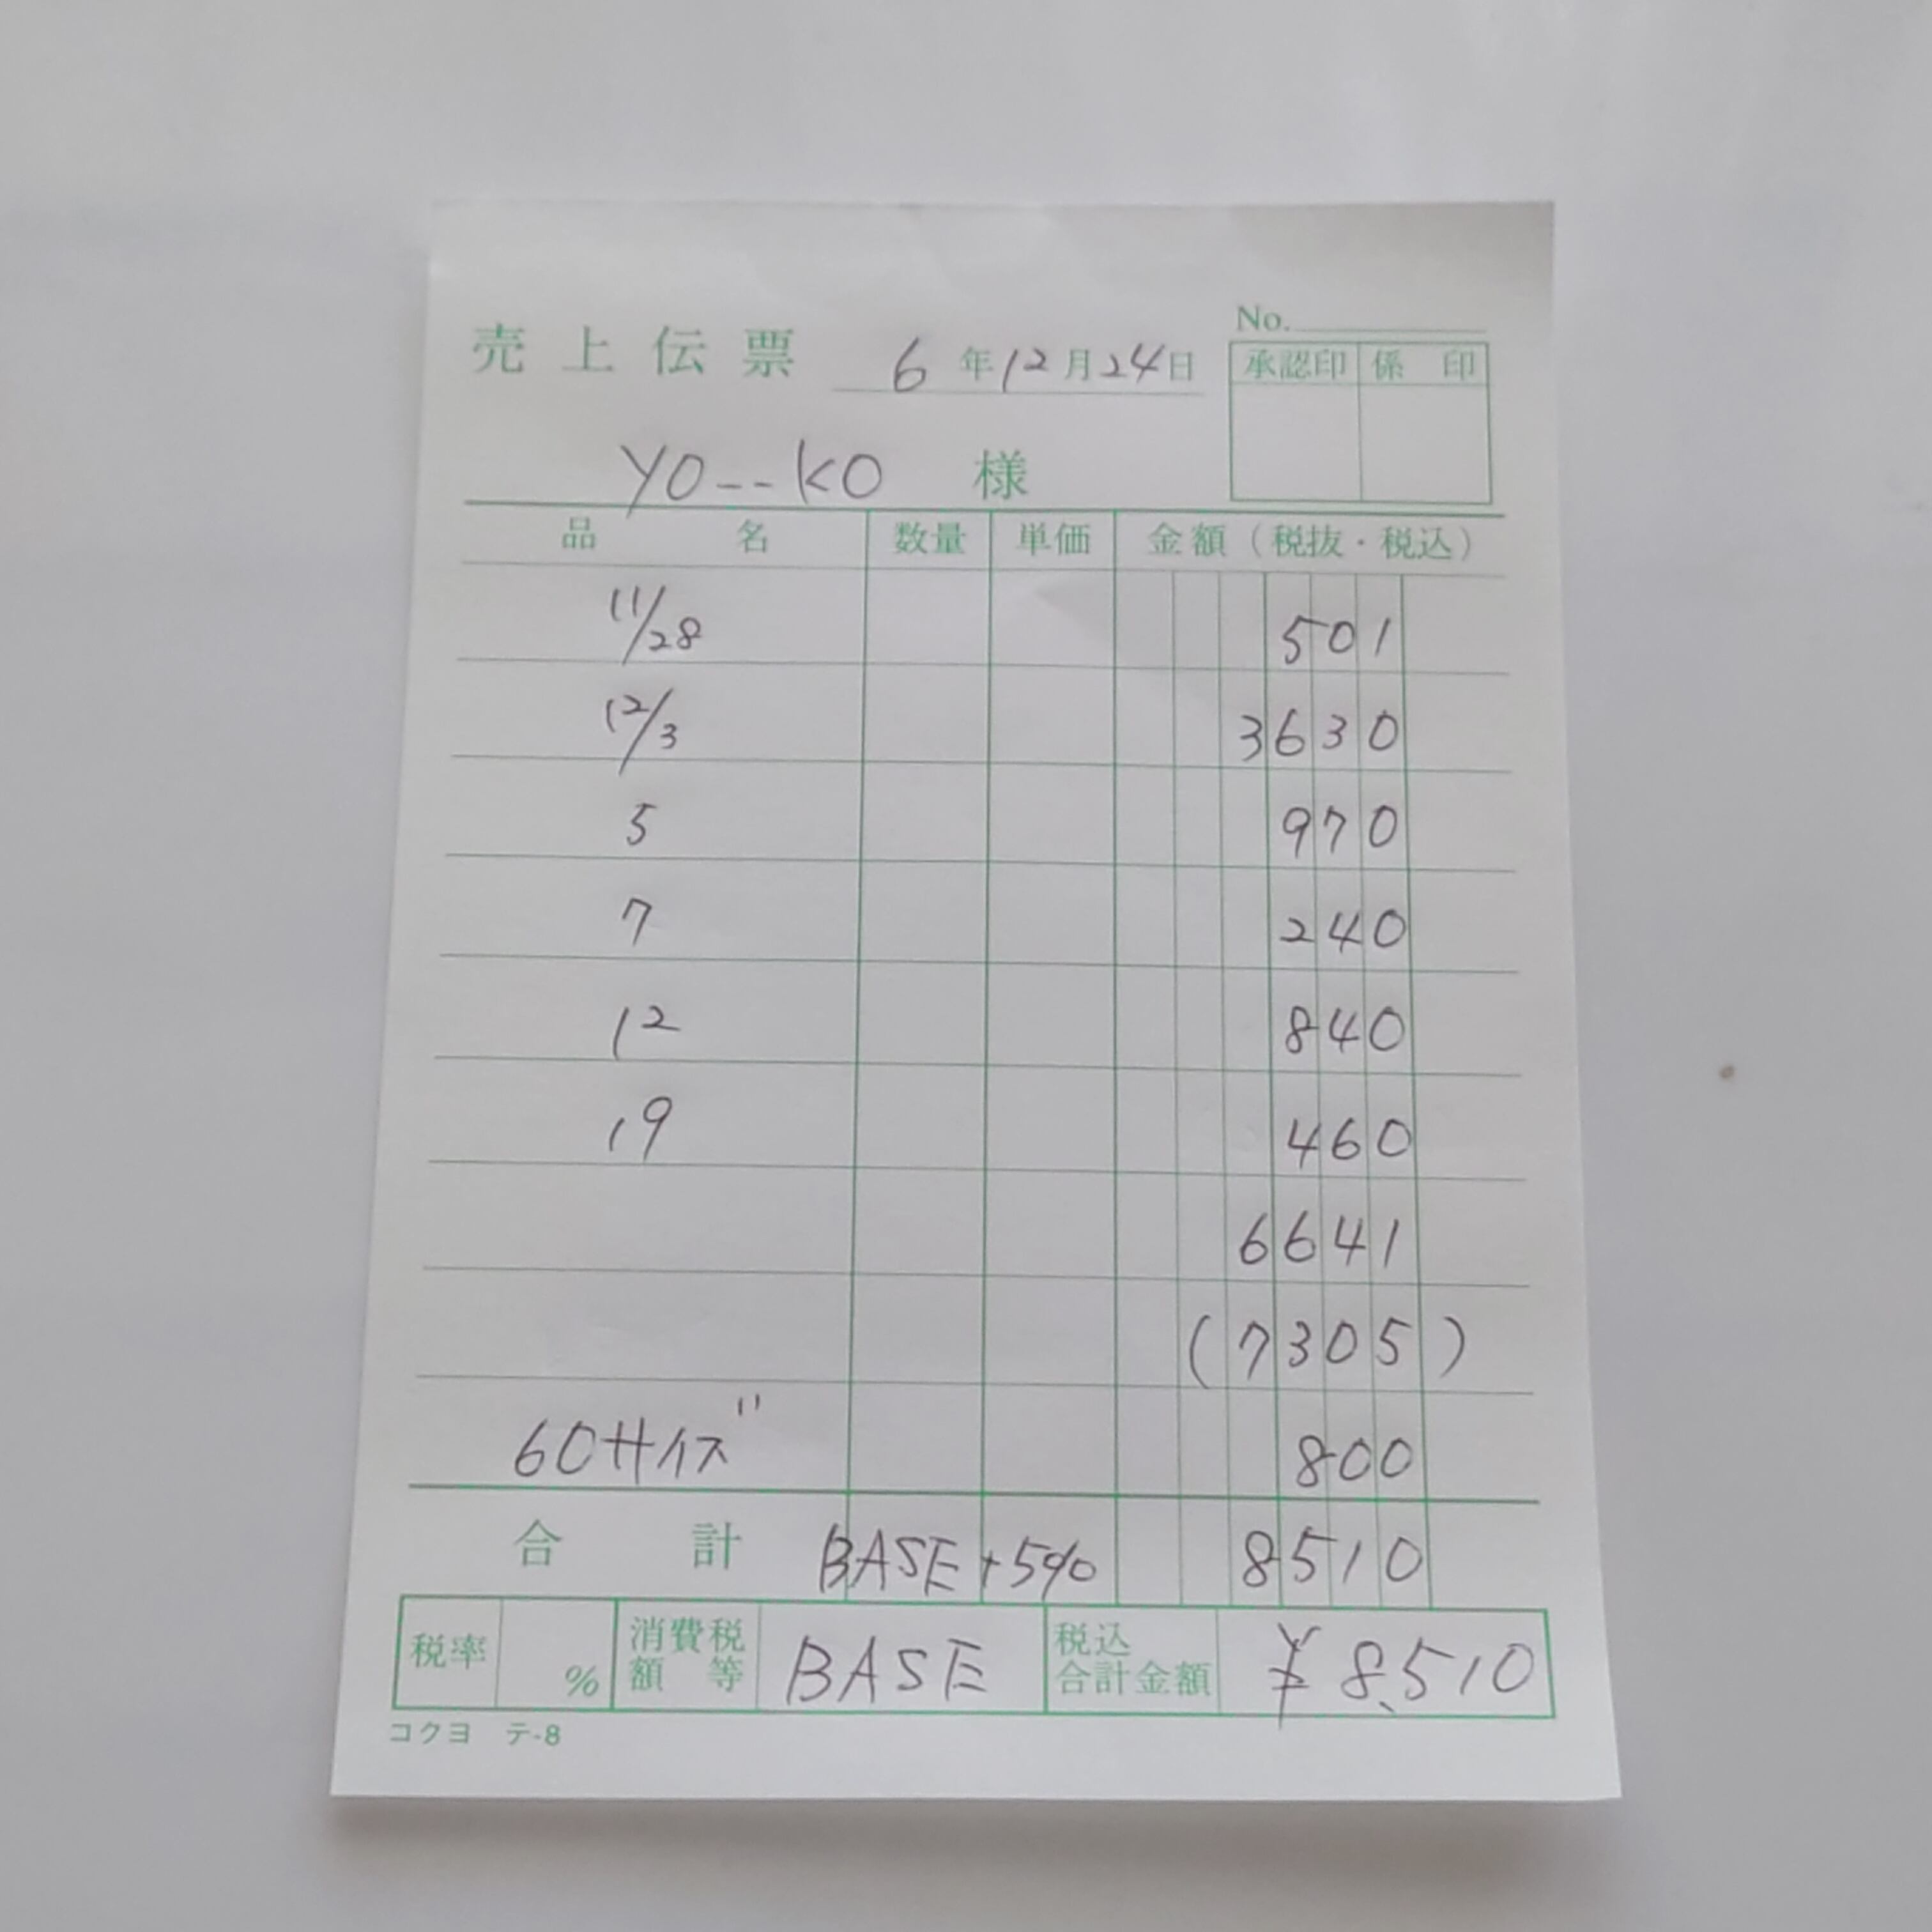 No.
売上伝票 6年12月24日
承認印 係印
YO--KO 様
品名 数量 単価 金額(税抜・税込)
11/28 501
12/3 3630
5 970
7 240
12 840
19 460
6641
(7305)
60サイズ 800
合計 BASE+5% 8510
税率 % 消費税額等 BASE 税込合計金額 ¥8,510
コクヨ テ-8